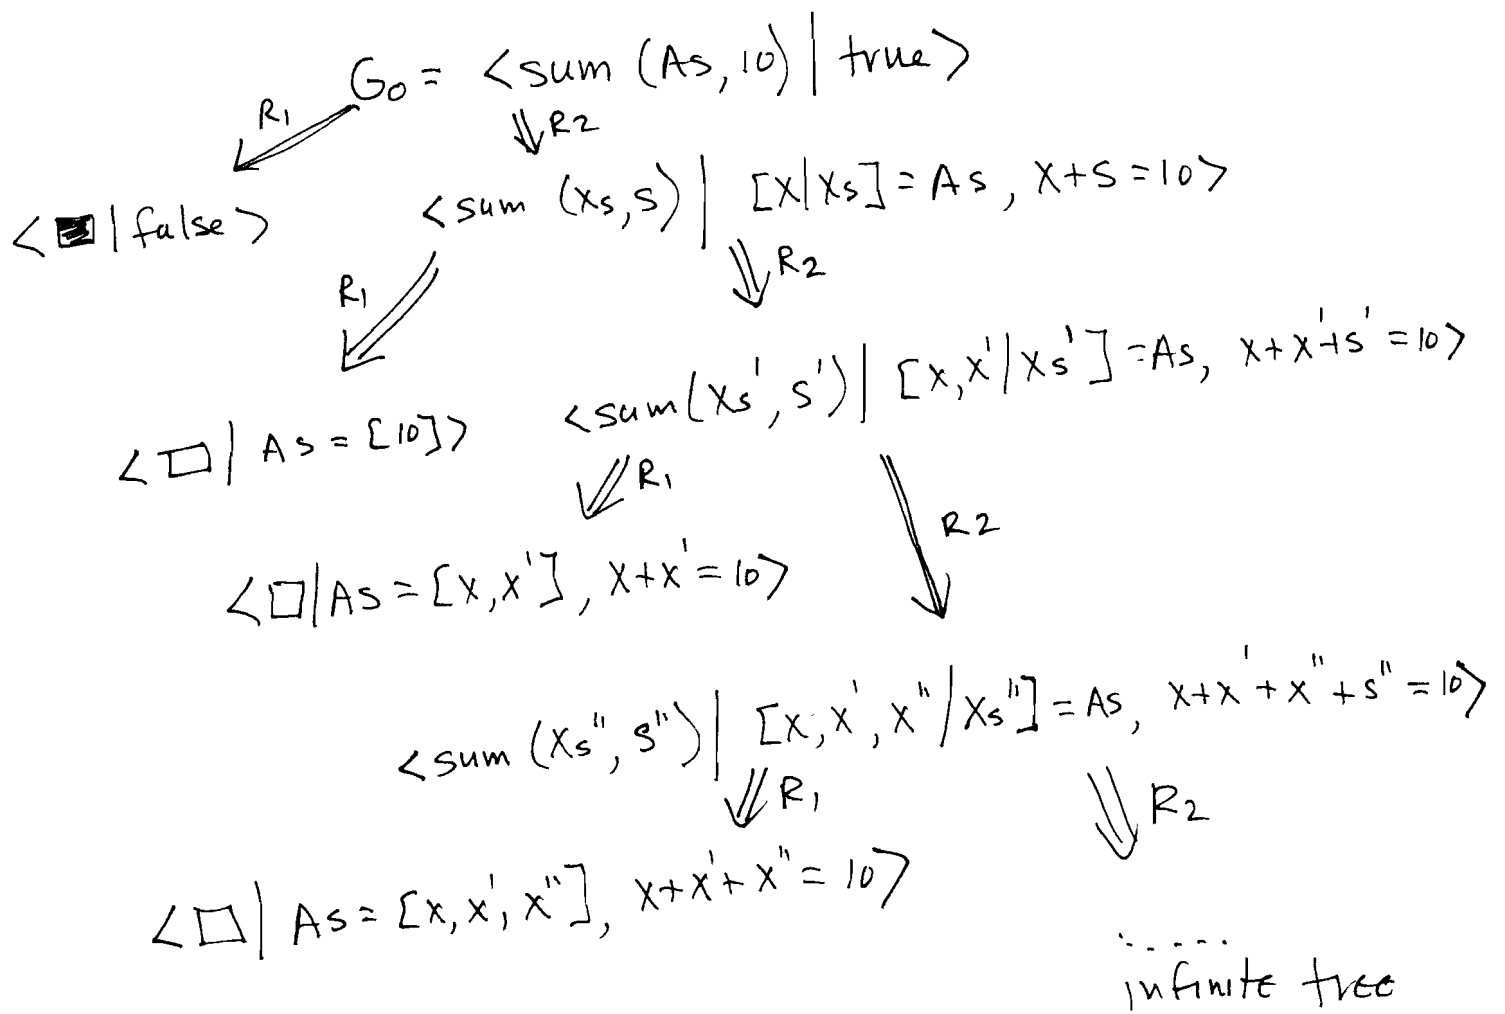 G₀ = <sum (As, 10) | true>
R₁
R2
<■ | false>
<sum (Xs, S) | [X|Xs] = As, X+S=10>
R₁
R2
<□ | As = [10]>
<sum(Xs', S') | [X,X'|Xs'] = As, X+X'+S' = 10>
R₁
R2
<□ | As = [X,X'], X+X' = 10>
<sum (Xs'', S'') | [X,X',X''|Xs''] = As, X+X'+X''+S'' = 10>
R₁
R2
<□ | As = [X,X',X''], X+X'+X'' = 10>
.....
infinite tree